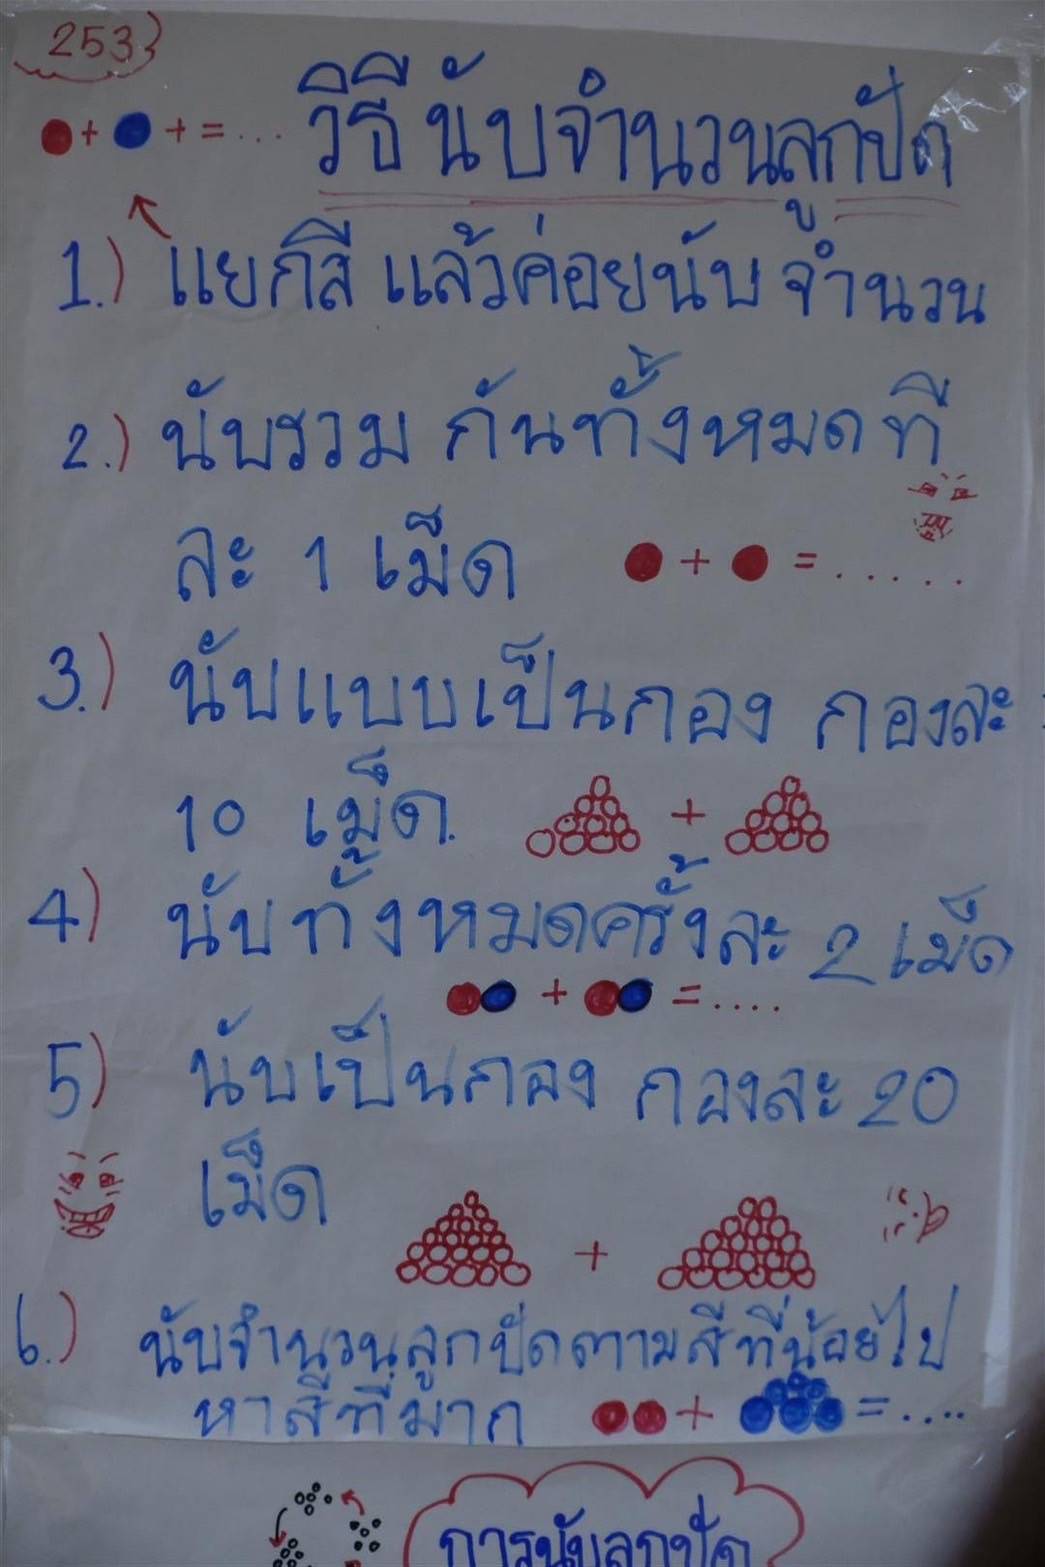 253
+ + = ... วิธีนับจำนวนลูกปัด
1.) แยกสี แล้วค่อยนับ จำนวน
2.) นับรวม กันทั้งหมดที
ละ 1 เม็ด + = . . . . .
3.) นับแบบเป็นกอง กองละ
10 เม็ด. +
4) นับทั้งหมดครั้งละ 2 เม็ด
+ = ....
5) นับเป็นกอง กองละ 20
เม็ด
+
6.) นับจำนวนลูกปัดตามสีที่น้อยไป
หาสีที่มาก + = ....
การนับลูกปัด